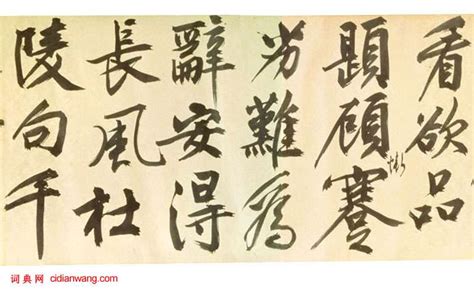 看欲品
題顧蹇
劣難為
辭安得
長風杜
陵句千
词典网 cidianwang.com